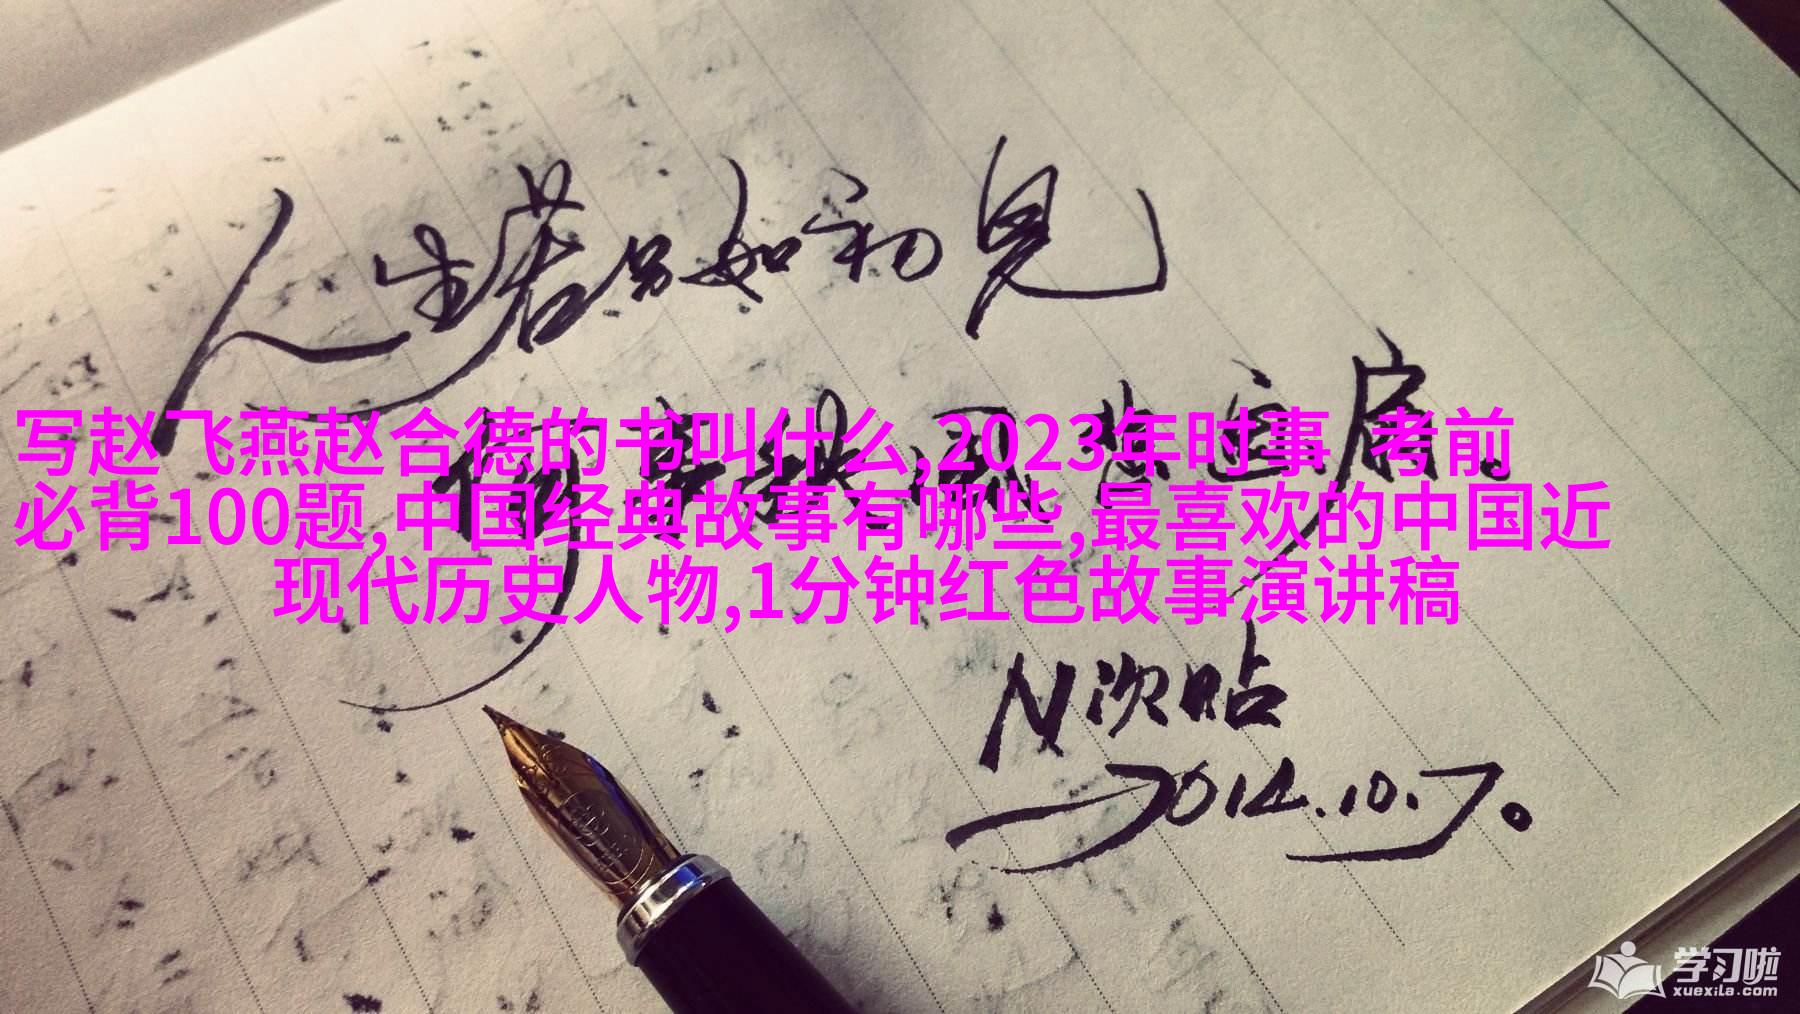 人生若只如初见
写赵飞燕赵合德的书叫什么,2023年时事 考前
必背100题,中国经典故事有哪些,最喜欢的中国近
现代历史人物,1分钟红色故事演讲稿
N次贴
2014.10.7。
学习啦
xuexila.com